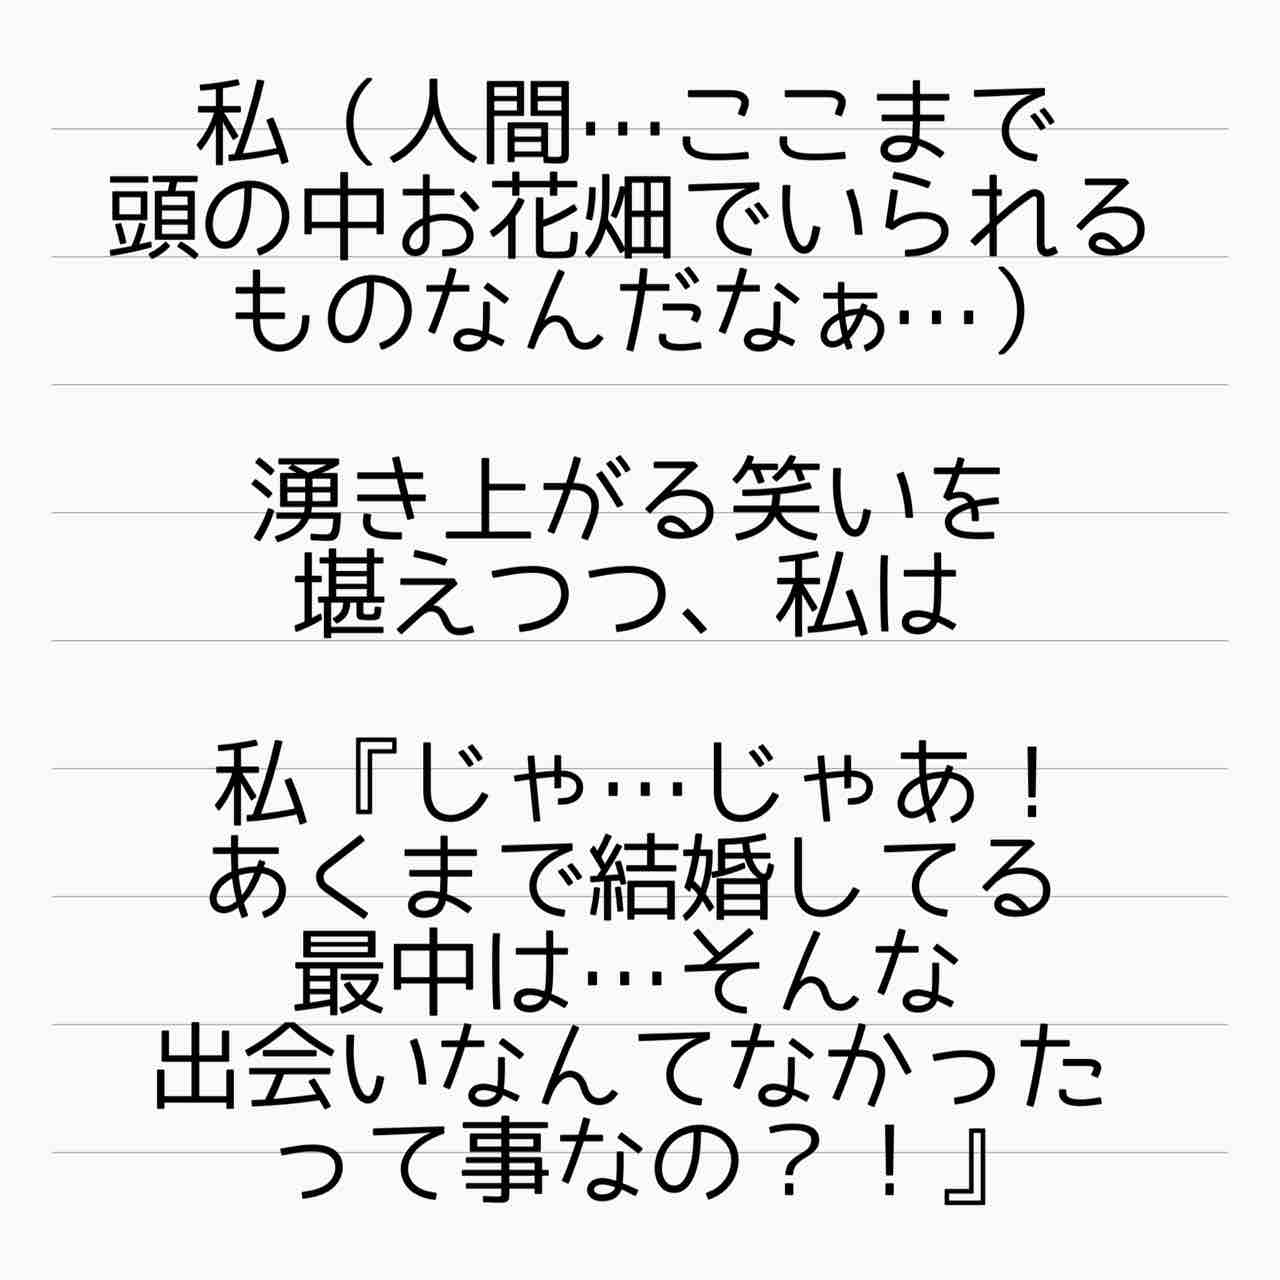 私（人間…ここまで
頭の中お花畑でいられる
ものなんだなぁ…）
湧き上がる笑いを
堪えつつ、私は
私『じゃ…じゃあ！
あくまで結婚してる
最中は…そんな
出会いなんてなかった
って事なの？！』